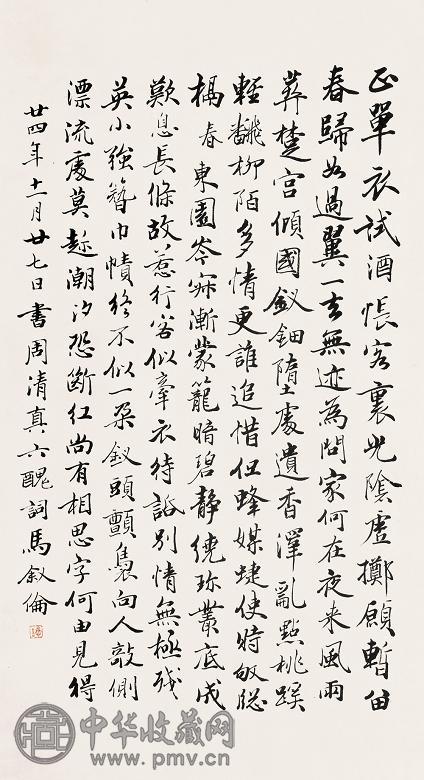 正單衣試酒悵客裏光陰虛擲願暫留
春歸如過翼一去無迹為問家何在夜來風雨
葬楚宮傾國釵鈿墮處遺香澤亂點桃蹊
輕翻柳陌多情更誰追惜但蜂媒蜨使時敂窗
槅春東園岑寂漸蒙籠暗碧靜繞珍叢底成
歎息長條故惹行客似牽衣待話別情無極殘
英小強簪巾幘終不似一朵釵頭顫裊向人敧側
漂流處莫趁潮汐恐斷紅尚有相思字何由見得
廿四年十一月廿七日書周清真六醜詞馬敘倫
中华收藏网
www.pmv.cn